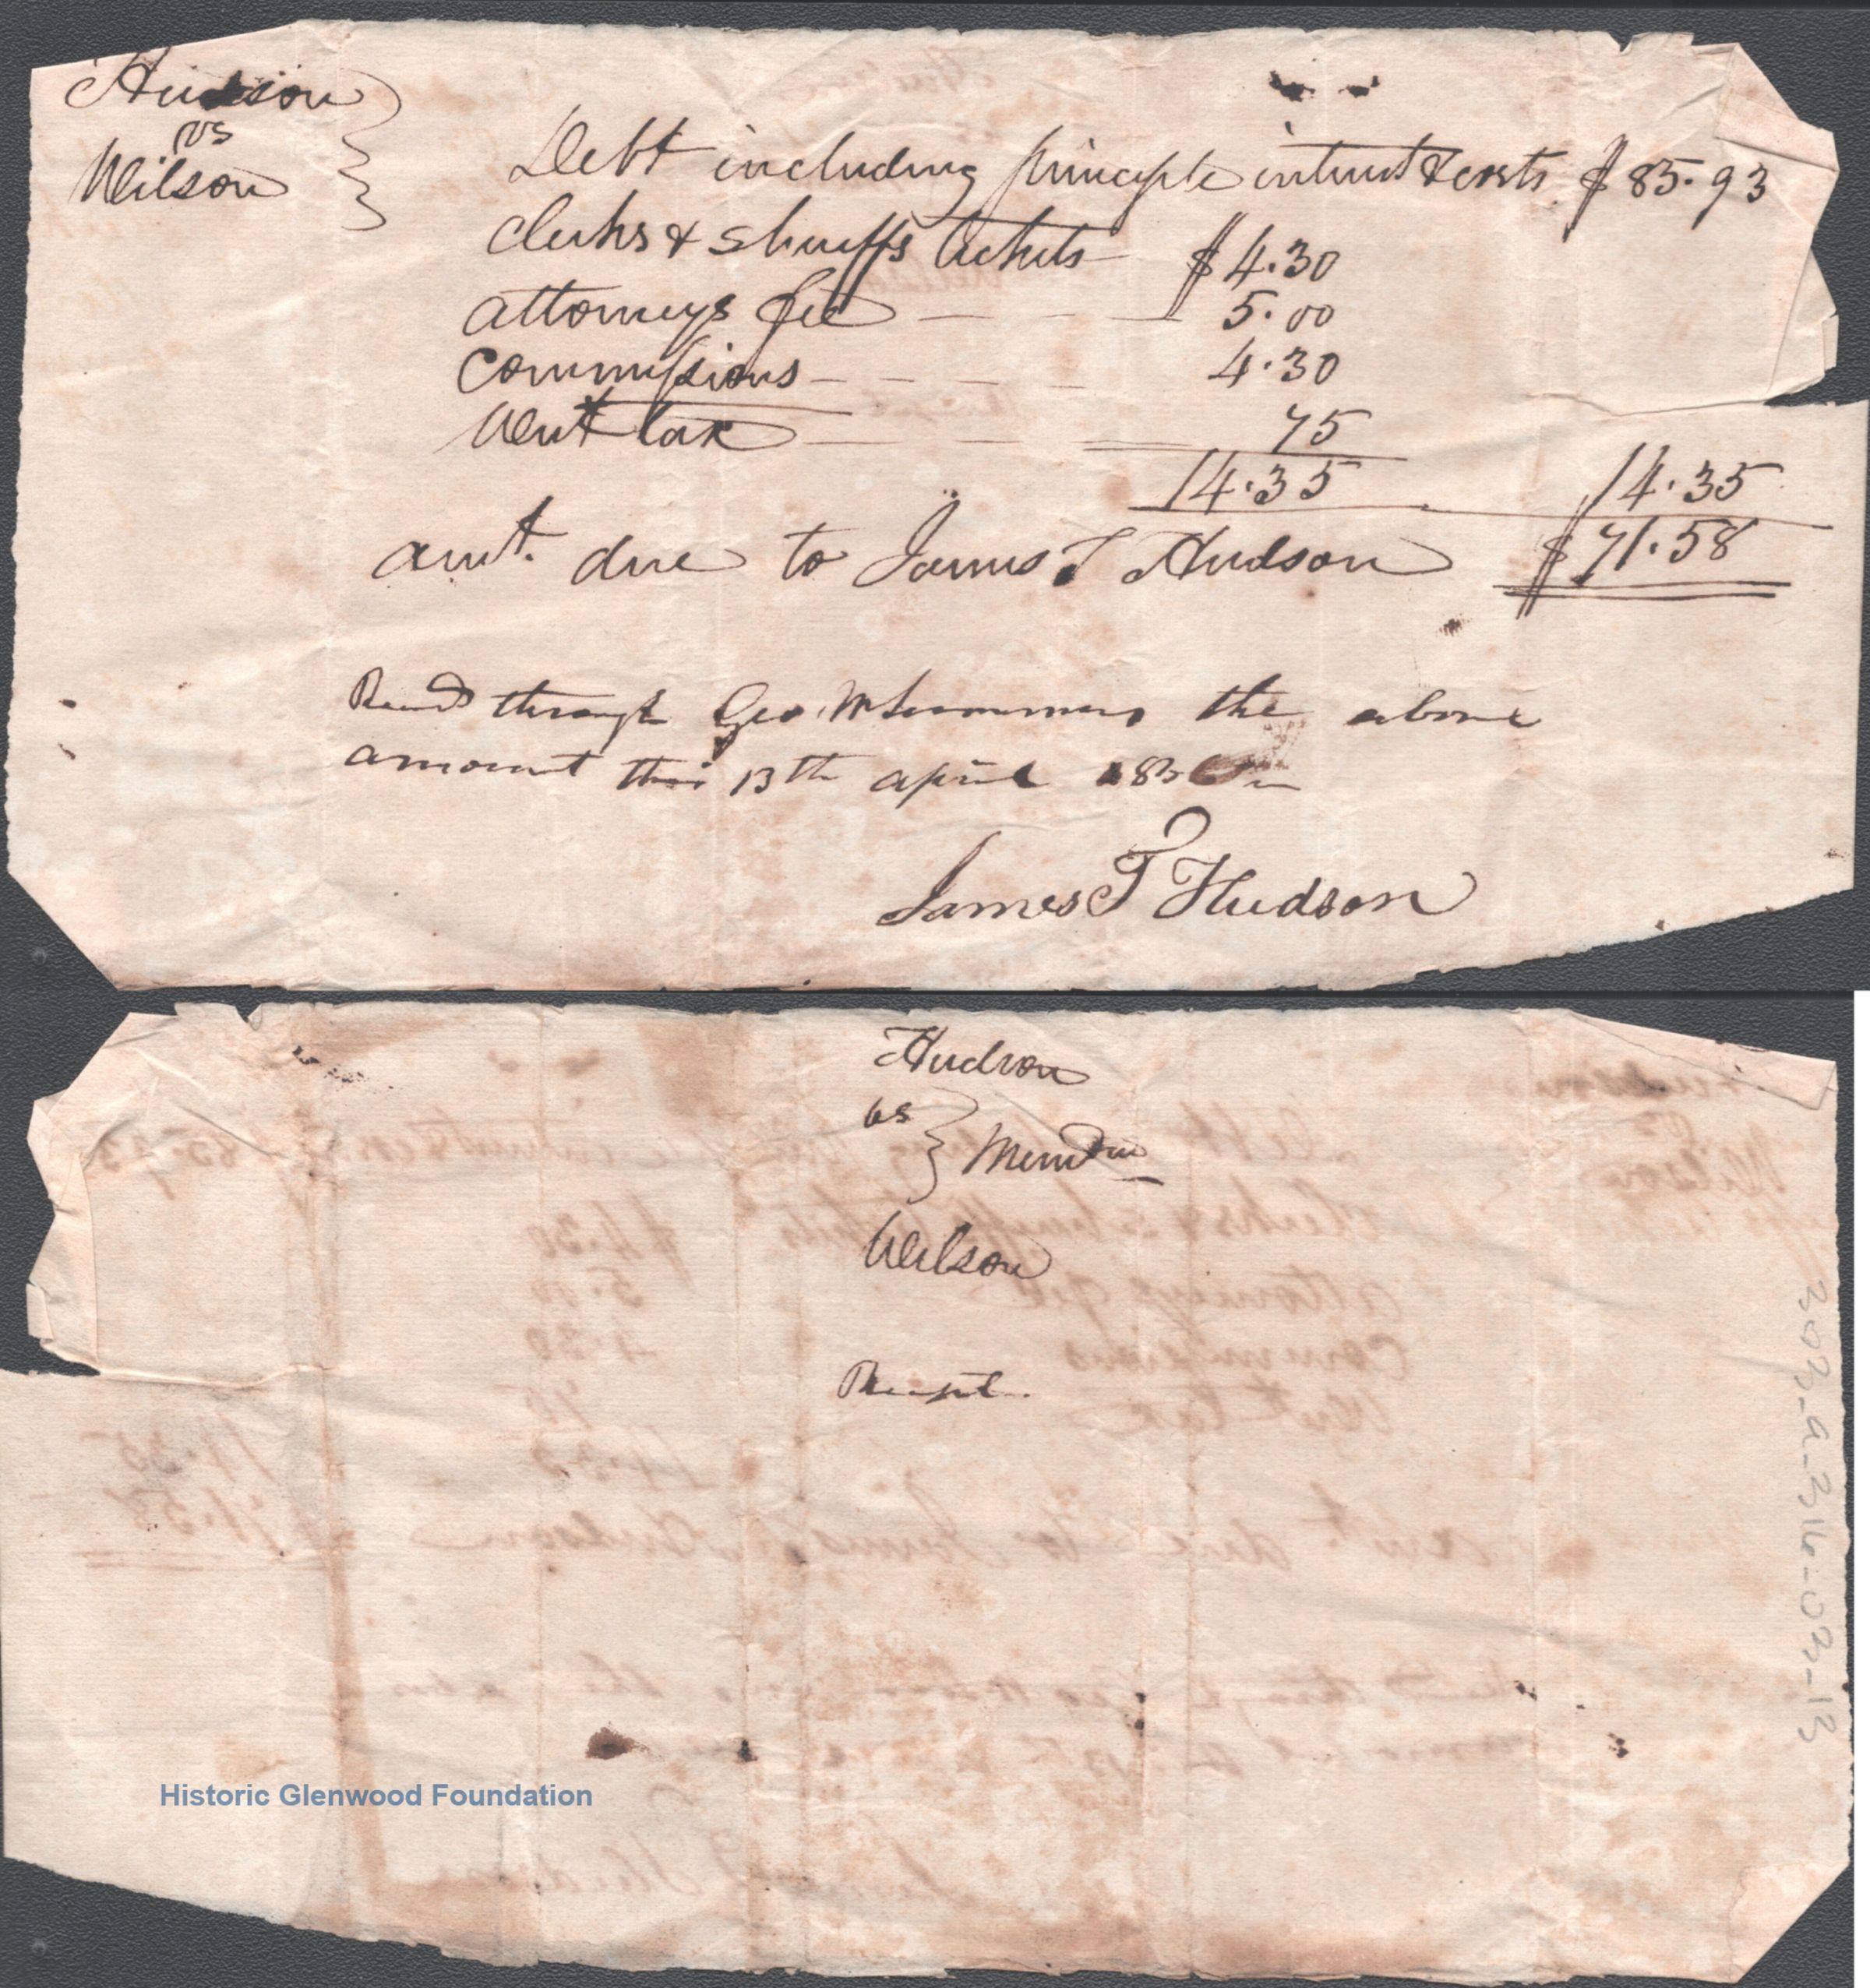 Hudson
vs
Wilson
Debt including principle interest & costs $ 85.93
Clerks & Sheriffs tickets $ 4.30
attorneys fee 5.00
Commissions 4.30
Writ tax 75
14.35 14.35
amt. due to James T Hudson $ 71.58
Recd through Geo. W Summers the above
amount this 13th april
James T Hudson
Hudson
vs
Memdm
Wilson
Receipt.
303-a-314-03-13
Historic Glenwood Foundation